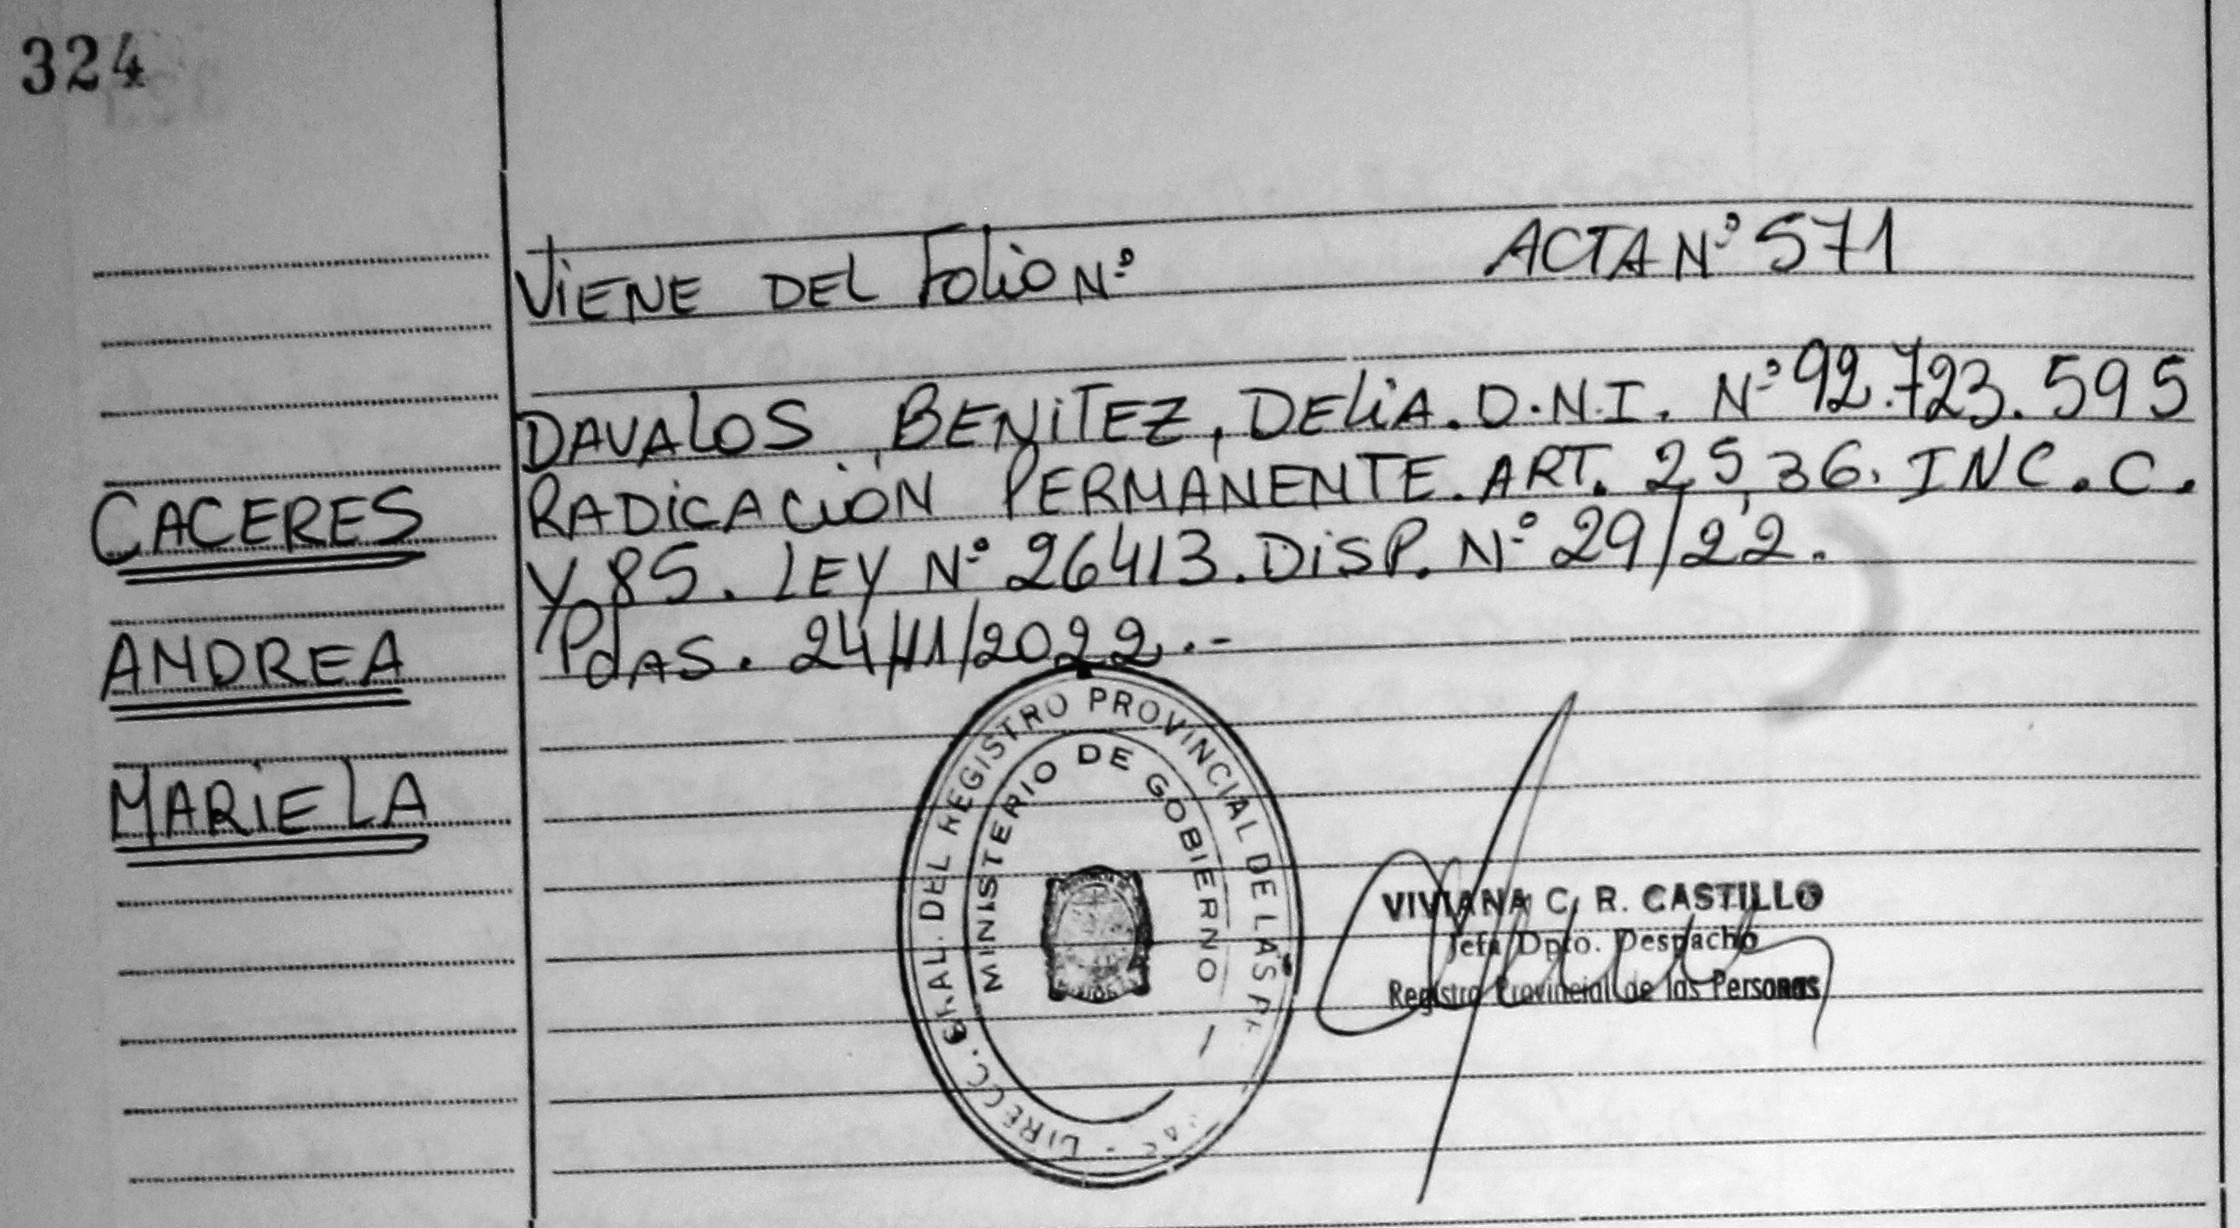 324
VIENE DEL FOLIO Nº ACTA Nº 571
DAVALOS BENITEZ, DELIA. D.N.I. Nº 92.723.595
CACERES
RADICACIÓN PERMANENTE. ART. 25, 36. INC. C.
Y 85. LEY Nº 26413. DISP. Nº 29/22.
ANDREA
PDAS. 24/11/2022.-
MARIELA
GRAL. DEL REGISTRO PROVINCIAL DE LAS
MINISTERIO DE GOBIERNO
VIVIANA C. R. CASTILLO
Jefa Dpto. Despacho
Registro Provincial de las Personas